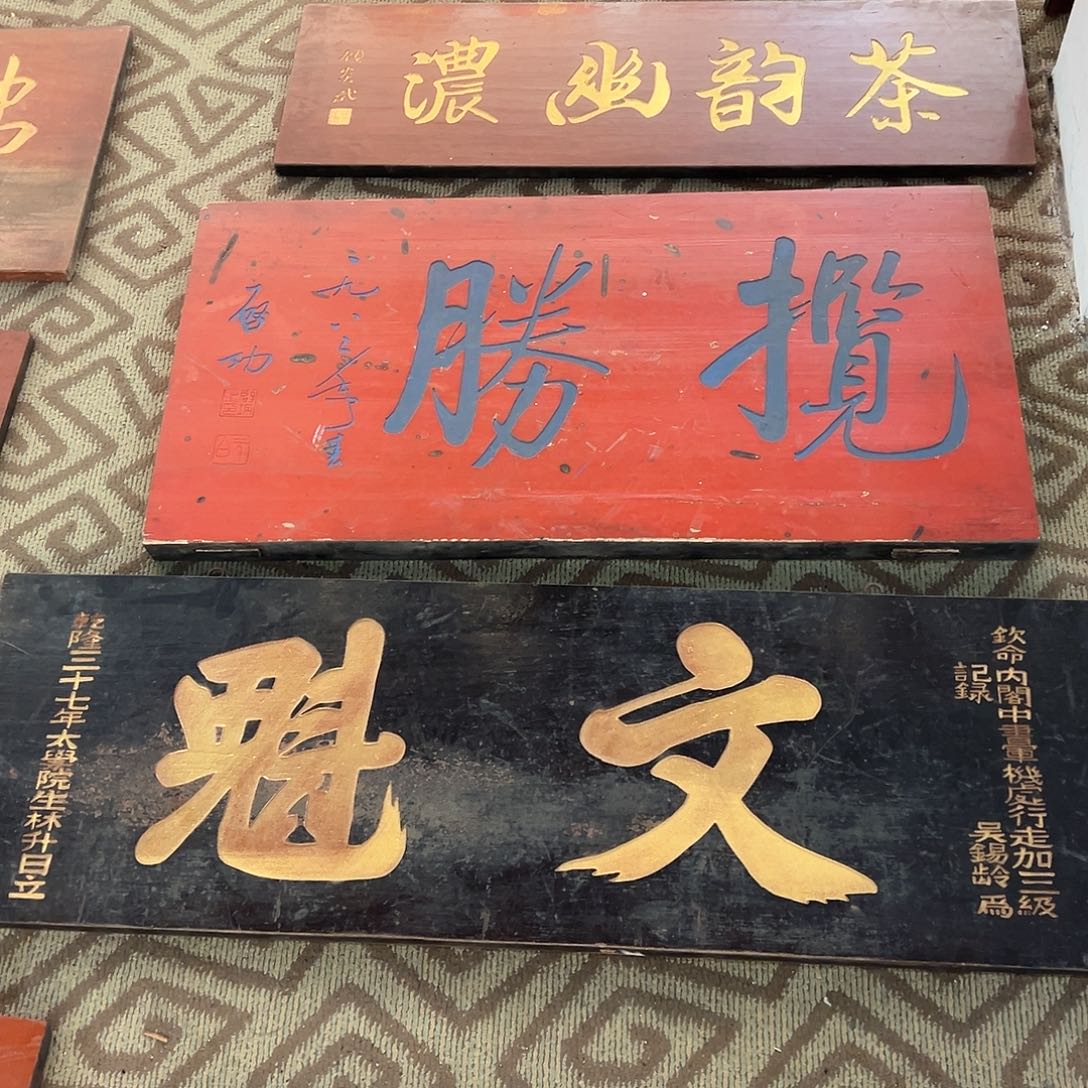 茶韵幽濃
攬勝
一九八三年書
启功
欽命内閣中書軍機處行走加三級
記録
吳錫龄爲
文魁
乾隆三十七年太學院生林升日立